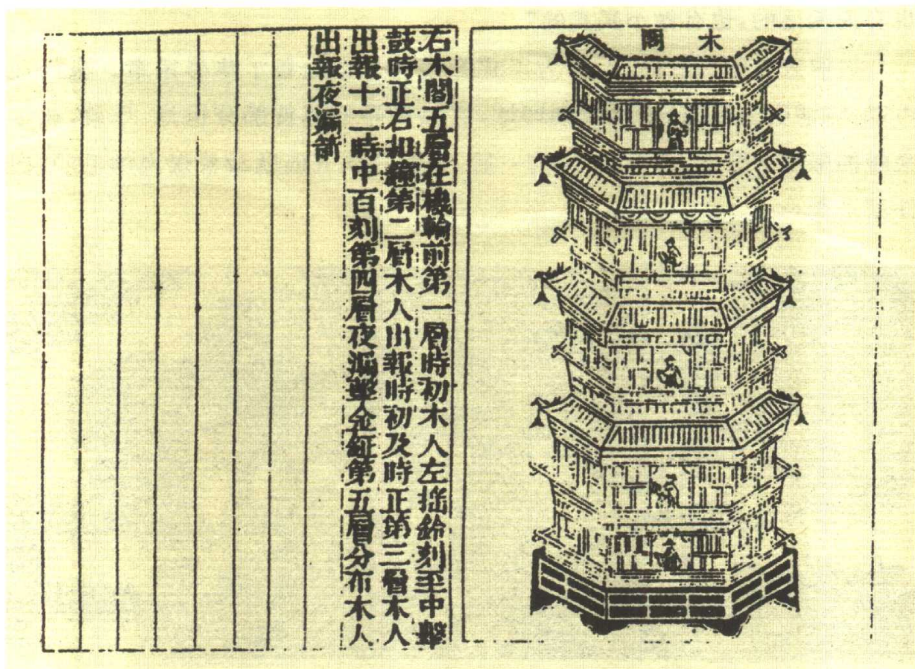 木閣
右木閣五層在機輪前第一層時初木人左揺鈴刻至中擊
鼓時正右扣鐘第二層木人出報時初及時正第三層木人
出報十二時中百刻第四層夜漏擊金鉦第五層分布木人
出報夜漏箭